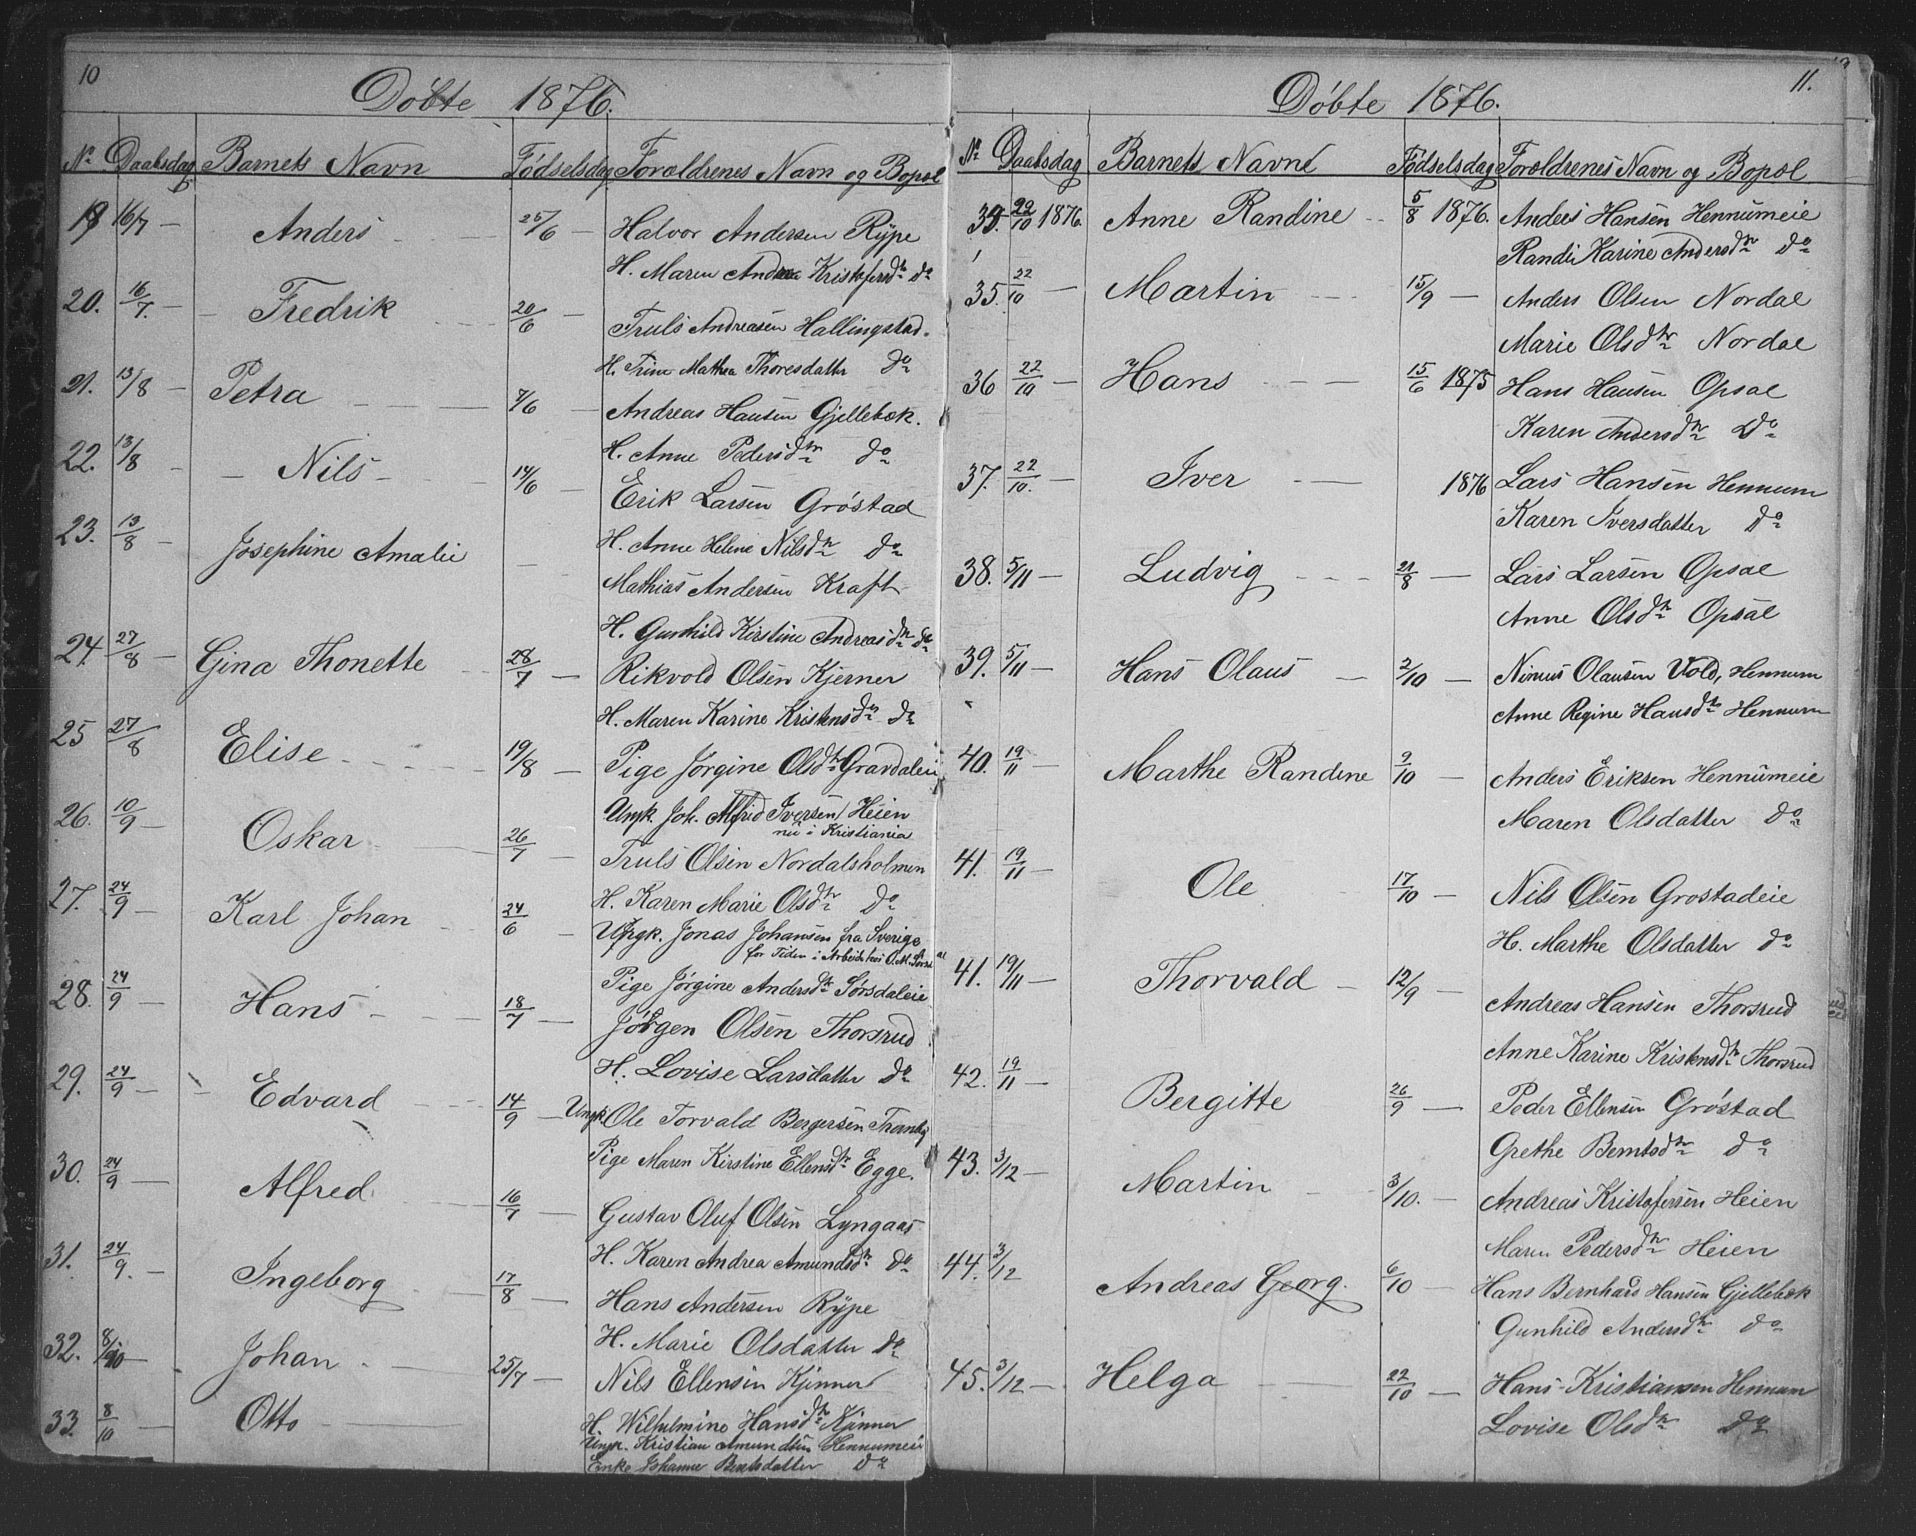 10
Döbte 1876.
No Daabsdag Barnets Navn Födselsdag Forældrenes Navn og Bopæl
19 16/7 — Anders 25/6 — Halvor Andersen Rÿpe
H. Maren Andrea Kristofersdtr do
20. 16/7. — Fredrik 20/6 — Truls Andreasen Hallingstad.
H. Trine Mathea Thoresdatter do
21. 13/8 — Petra 7/6 — Andreas Hansen Gjellebæk.
H. Anne Pedersdtr do
22. 13/8 — Nils 14/6 — Erik Larsen Gröstad
H. Anne Helene Nilsdtr do
23. 13/8 — Josephine Amalie — Mathias Andersen Kraft
H. Gunhild Kirstine Andreasdtr do
24. 27/8 — Gina Thonette 28/7 — Rikvold Olsen Kjerner
H. Maren Karine Kristensdtr do
25 27/8 Elise 19/8 — Pige Jörgine Olsdtr Gravdaleie
Ungk. Joh. Alfrid Iversen Heien
nu i Kristiania
26. 10/9 — Oskar 26/7 — Truls Olsen Nordalsholmen
H. Karen Marie Olsdtr do
27. 24/9 — Karl Johan 24/6 — Ungk. Jonas Johansen fra Sverige
for Tiden i Arbeide hos O. M.
Pige Jörgine Andersdtr Sörsdaleie
28. 24/9 — Hans 18/7 — Jörgen Olsen Thorsrud
H. Lovise Larsdatter do
29. 24/9 — Edvard 14/9 — Ungk Ole Torvald Bergersen Thornby
Pige Maren Kirstine Ellensdtr Egge.
30. 24/9 — Alfred 16/7 — Gustav Oluf Olsen Lyngaas
H. Karen Andrea Amundsdtr do
31. 24/9. — Ingeborg 17/8 — Hans Andersen Rÿpe
H. Marie Olsdatter do
32. 8/10 — Johan 25/7 — Nils Ellensen Kjinner
H. Wilhelmine Hansdtr Kjinner
33. 8/10 — Otto — Ungk. Kristian Amundsen Hennumeie
Enke Johanne Berntsdatter do
11.
Döbte 1876.
No Daabsdag Barnets Navne Födselsdag Forældrenes Navn og Bopæl
34. 22/10 1876. Anne Randine 5/8 1876. Anders Hansen Hennumeie
Randi Karine Andersdtr do
35. 22/10 — Martin 15/9 — Anders Olsen Nordal
Marie Olsdtr Nordal
36 22/10 — Hans 15/6 1875 Hans Hansen Opsal
Karen Andersdtr do
37. 22/10. — Iver — 1876 Lars Hansen Hennum
Karen Iversdatter do
38. 5/11 — Ludvig 21/8 — Lars Larsen Opsal
Anne Olsdtr Opsal
39. 5/11 — Hans Olaus — 2/10 — Nimus Olausen Vold, Hennum
Anne Regine Hansdtr Hennum
40. 19/11 — Marthe Randine 9/10 — Anders Eriksen Hennumeie
Maren Olsdatter do
41. 19/11 — Ole 17/10 — Nils Olsen Grostadeie
H. Marthe Olsdatter do
41. 19/11 — Thorvald — 12/9 — Andreas Hansen Thorsrud
Anne Karine Kristensdtr Thorsrud
42. 19/11 — Bergitte 26/9 — Peder Ellensen Gröstad
Grethe Berntsdtr do
43. 3/12 — Martin — 3/10. — Andreas Kristofersen Heien
Maren Pedersdtr Heien
44. 3/12 Andreas Georg. 6/10 — Hans Bernhard Hansen Gjellebæk
Gunhild Andersdtr do
45. 3/12 — Helga — 22/10 — Hans Kristiansen Hennum
Lovise Olsdtr do